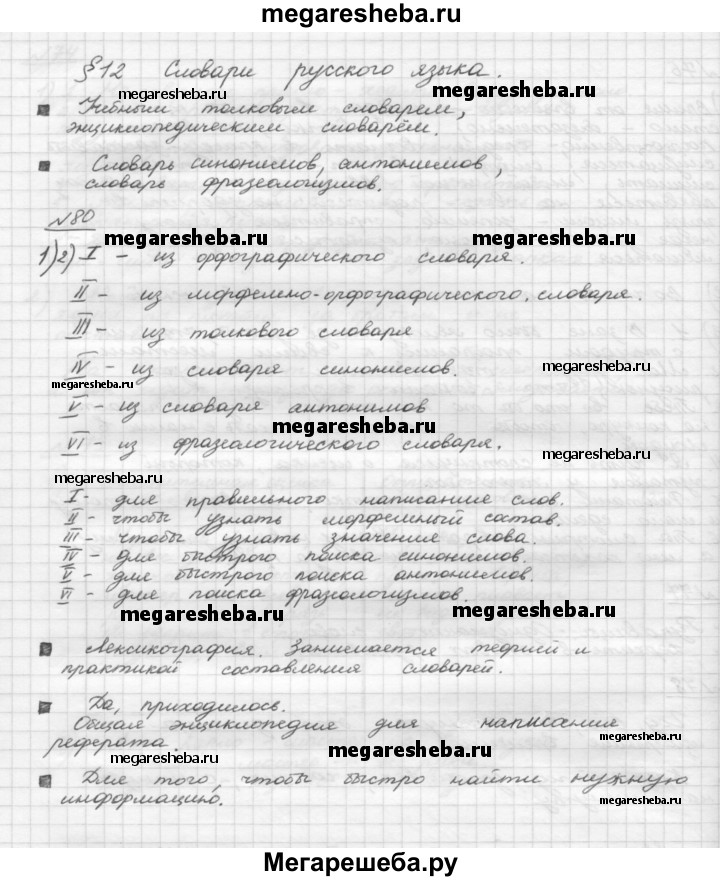 megaresheba.ru
§12 Словари русского языка.
megaresheba.ru megaresheba.ru
Учебным толковым словарем,
энциклопедическим словарём.
Словарь синонимов, антонимов,
словарь фразеологизмов.
№80
megaresheba.ru megaresheba.ru
1)2) I - из орфографического словаря.
II - из морфемно-орфографического словаря.
III - из толкового словаря
IV - из словаря синонимов. megaresheba.ru
megaresheba.ru
V - из словаря антонимов
VI - из фразеологического словаря. megaresheba.ru
megaresheba.ru
I - для правильного написание слов.
II - чтобы узнать морфемный состав.
III - чтобы узнать значения слова.
IV - для быстрого поиска синонимов.
V - для быстрого поиска антонимов.
VI - для поиска фразеологизмов.
megaresheba.ru megaresheba.ru
Лексикография. Занимается теорией и
практикой составления словарей.
Да, приходилось.
Общая энциклопедия для написания
реферата.
megaresheba.ru megaresheba.ru
Для того, чтобы быстро найти нужную
информацию. megaresheba.ru
Мегарешеба.ру